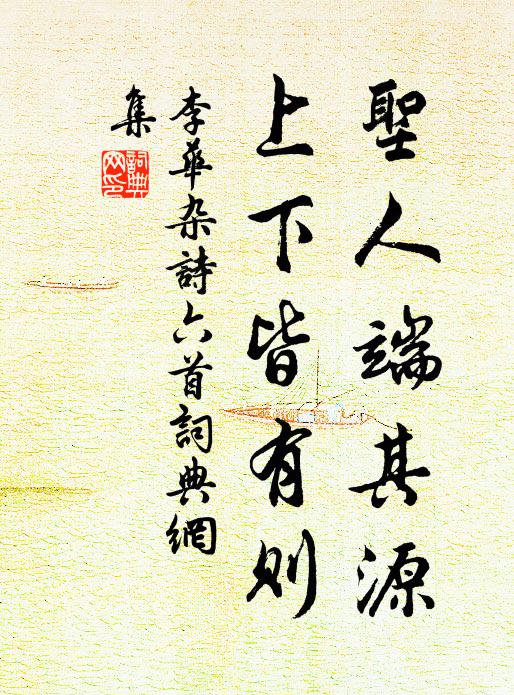 聖人端其源
上下皆有則
李華杂詩六首詞典網
集
詞典网印